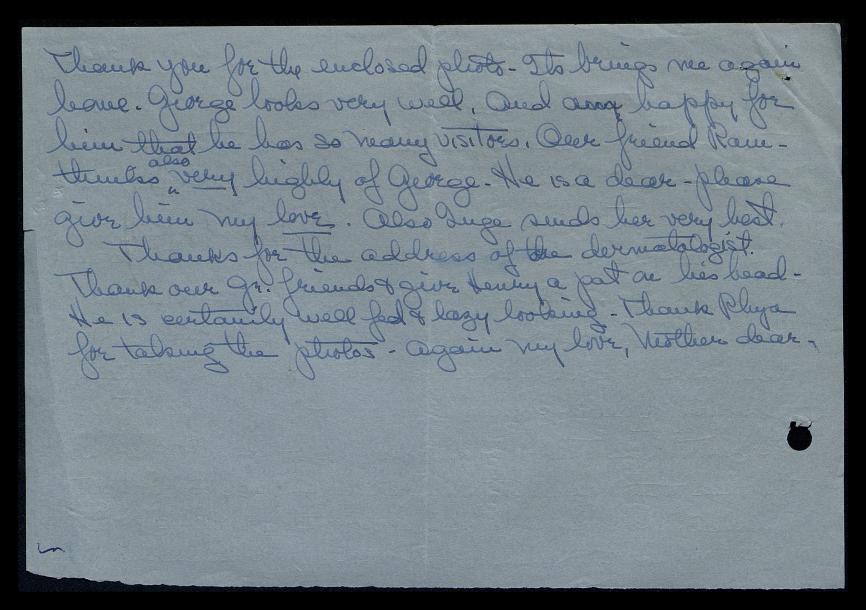 Thank you for the enclosed photo - Its brings me again
home. George looks very well, and am happy for
him that he has so many visitors. Our friend Ram -
thinks also very highly of George. He is a dear - please
give him my love. Also Inge sends her very best.
Thanks for the address of the dermatologist.
Thank our Gr. friends & give Henry a pat on his head -
He is certainly well fed & lazy looking - Thank Rhya
for taking the photos - again my love, Mother dear -